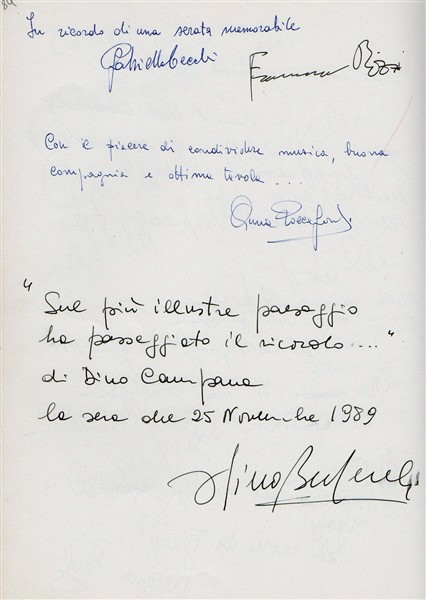 In ricordo di una serata memorabile
Gabriella Cecchi
Francesco Rizzi
Con il piacere di condividere musica, buona
compagnia e ottima tavola ...
Anna
"Sul più illustre paesaggio
ha passeggiato il ricordo ..."
di Dino Campana
la sera del 25 Novembre 1989